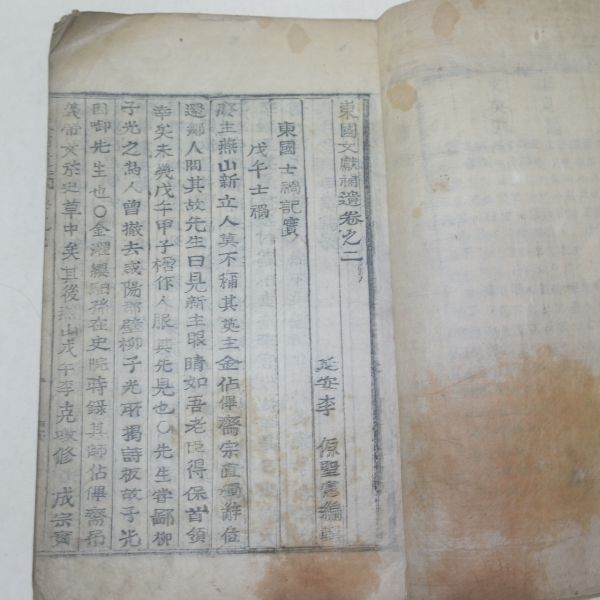 東國文獻補遺卷之二
延安李 源聖應編輯
東國士禍記實
戊午士禍
廢主燕山新立人莫不稱其英主金佔畢齋宗直獨辭位
還鄉人問其故先生曰見新主眼睛如吾老臣得保首領
幸矣未幾戊午甲子禍作人服其先見也○先生嘗鄙柳
子光之為人曾撤去咸陽郡壁柳子光所揭詩板故子光
因啣先生也○金濯纓馹孫在史院時錄其師佔畢齋弔
義帝文於史草中矣其後燕山戊午李克墩修 成宗實